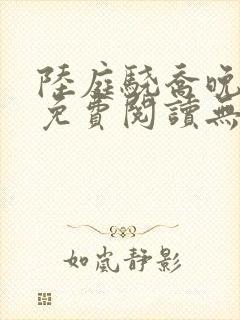 陸庭驍喬晚
免費閱讀無
如嵐靜影